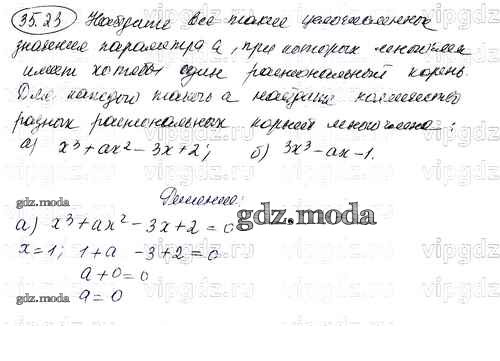 35.23 Найдите все такие целочисленные
значения параметра а, при которых многочлен
имеет хотя бы один рациональный корень.
Для каждого такого а найдите количество
разных рациональных корней многочлена:
а) x³+ax²-3x+2; б) 3x³-ax-1.
Решение:
а) x³+ax²-3x+2=0
x=1; 1+a -3+2=0
a+0=0
a=0
gdz.moda
gdz.moda
gdz.moda